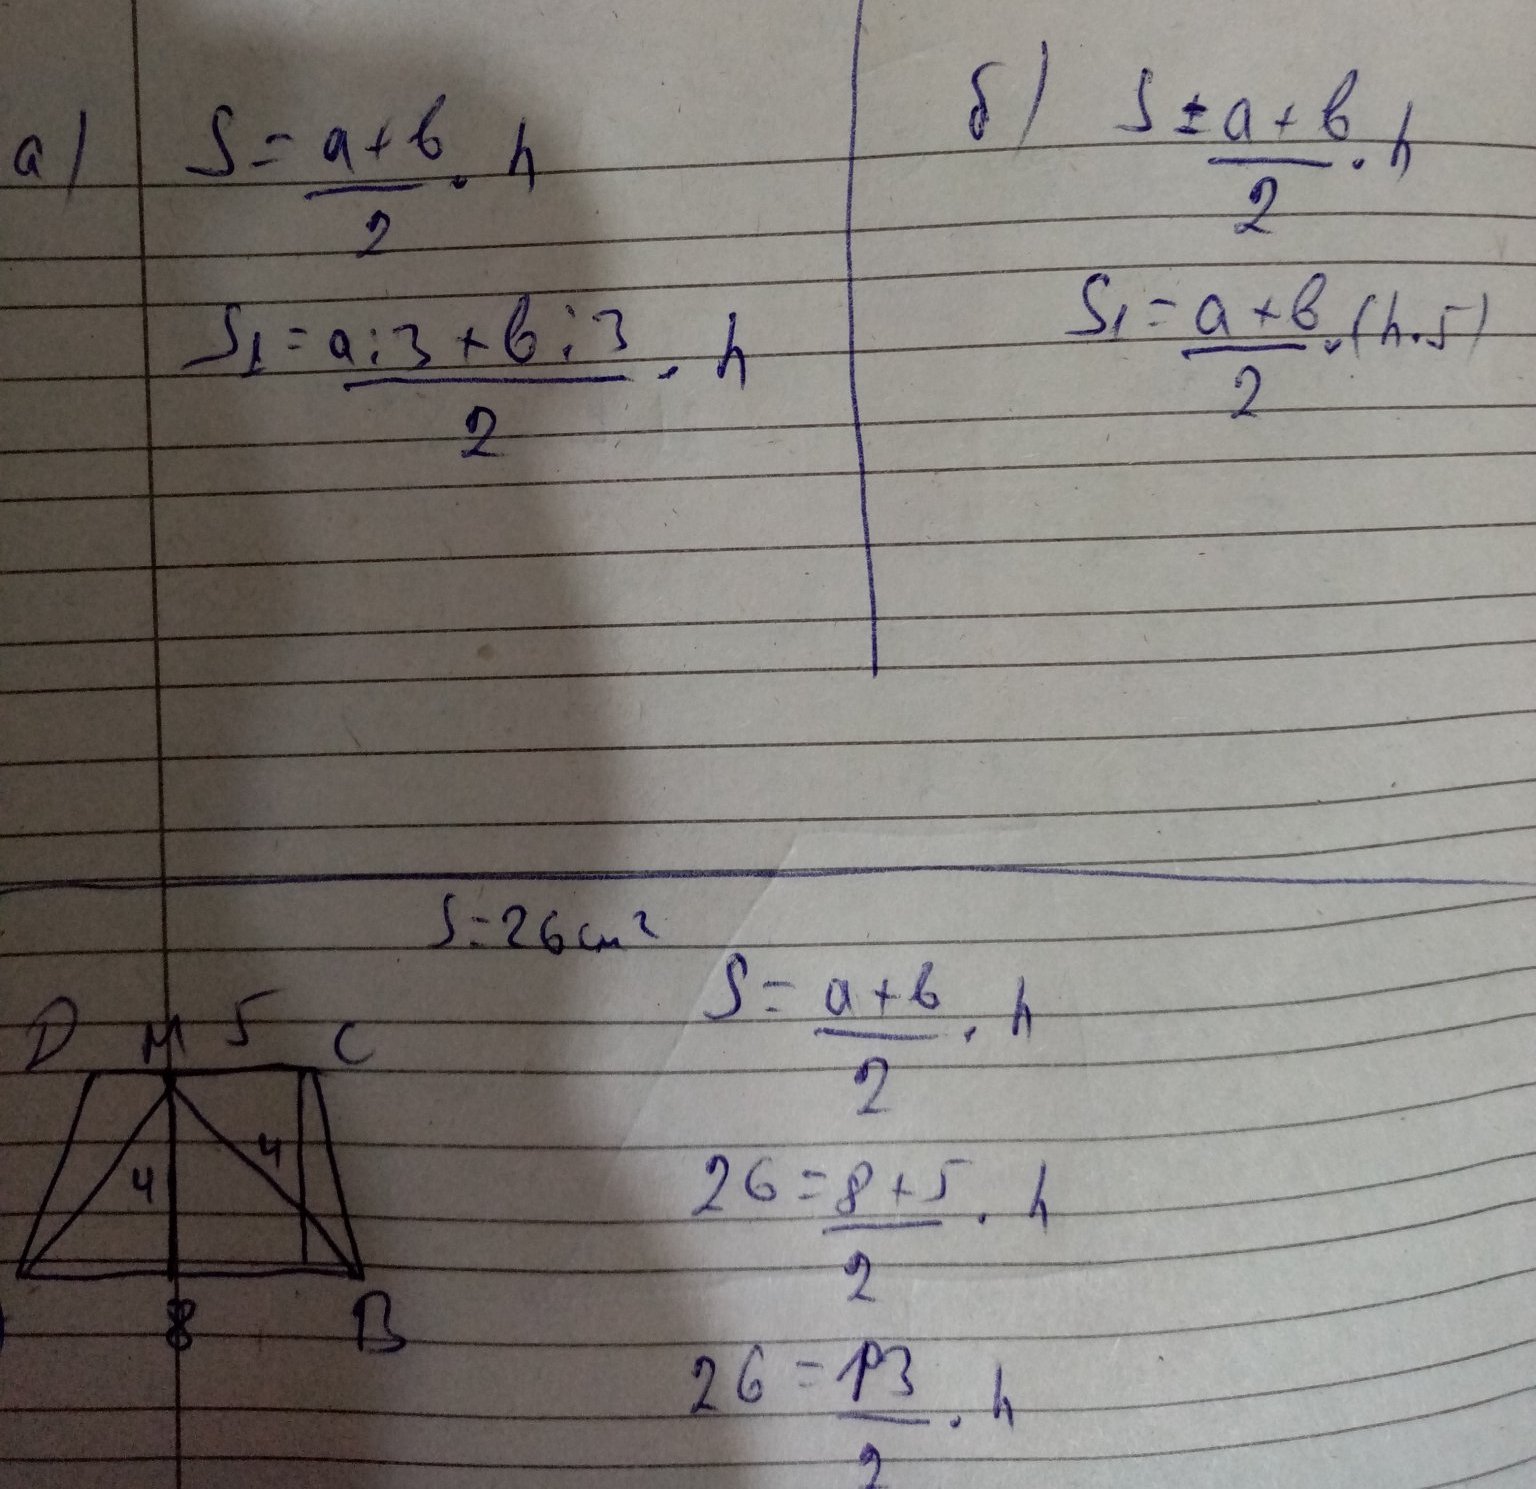 а) S = a + b / 2 · h
S₁ = a : 3 + b : 3 / 2 · h
б) S = a + b / 2 · h
S₁ = a + b / 2 · (h · 5)
S = 26 см²
D M 5 C
4 4
8 B
S = a + b / 2 · h
26 = 8 + 5 / 2 · h
26 = 13 / 2 · h